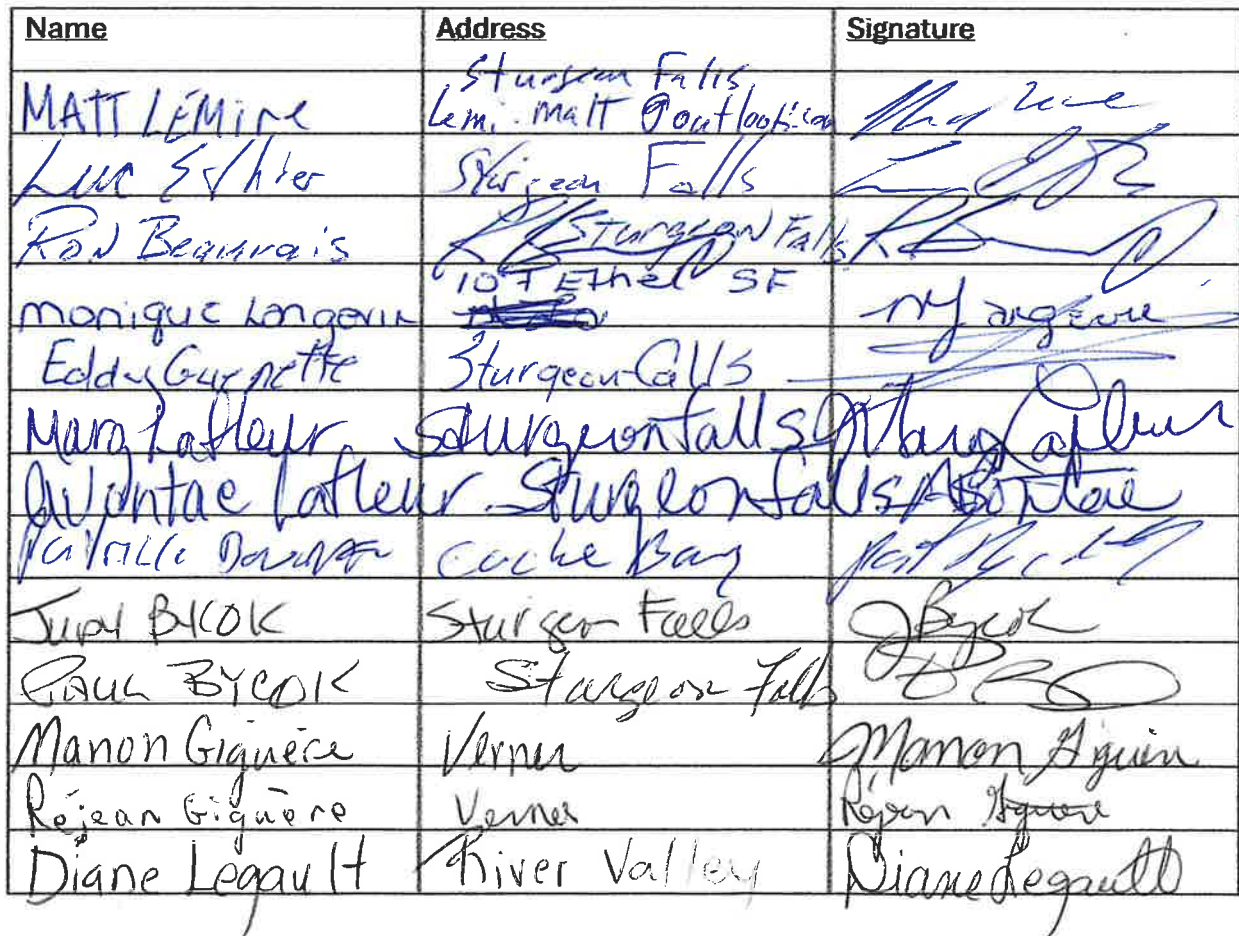 Name Address Signature
Sturgeon Falls
MATT LEMIRE Lemi.matt@outlook.com
Luc Sturgeon Falls
Ron Beauvais Sturgeon Falls
107 Ethel SF
Monique Langevin M Langevin
Eddy Guenette Sturgeon Falls
Marg Lafleur Sturgeon Falls Marg Lafleur
Lafleur Sturgeon Falls
Cache Bay
Judy BYCOK Sturgeon Falls J Bycok
PAUL BYCOK Sturgeon Falls
Manon Giguère Verner Manon Giguère
Réjean Giguère Verner Réjean Giguère
Diane Legault River Valley Diane Legault